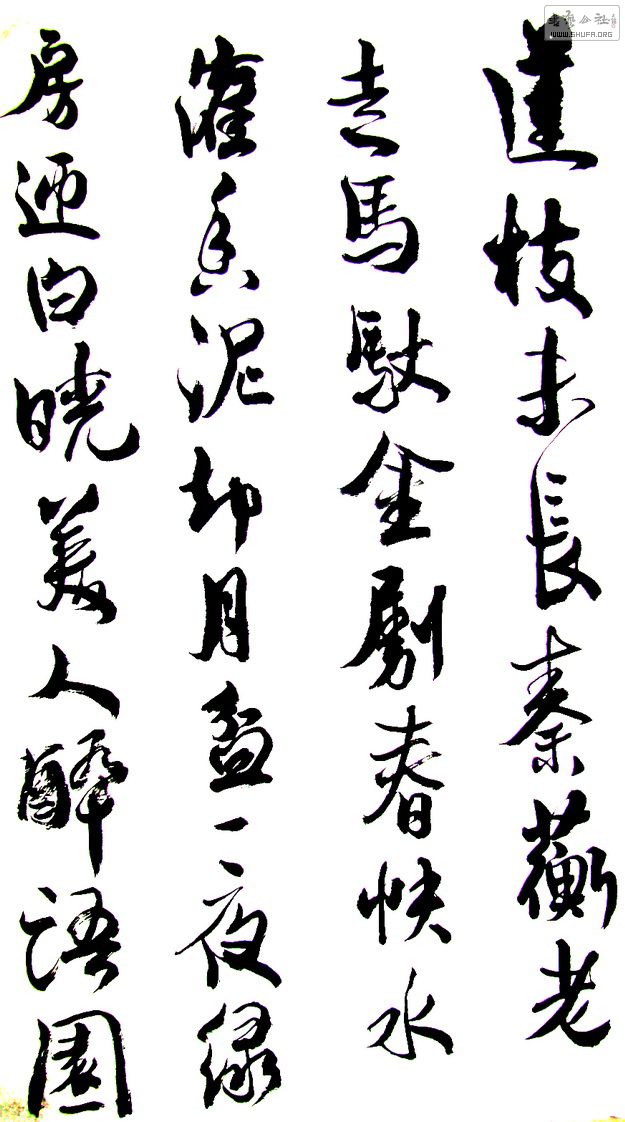 書藝公社
WWW.SHUFA.ORG
蓮枝未長秦蘅老
走馬馱金劚春水
灌香泥却月盆一夜緑
房迎白曉美人醉語園